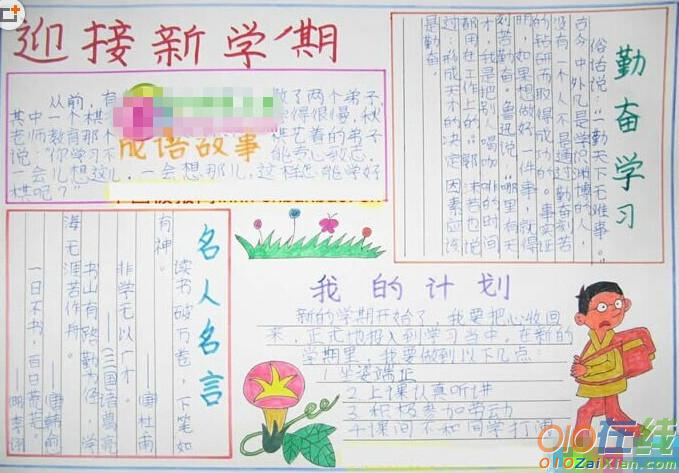 迎接新学期
从前,有
教了两个弟子,
其中一个棋
学得很慢,秋
老师教育那个
棋艺差的弟子
说:"你学习不
能专心致志,
一会儿想这儿,一会想那儿,这样怎能学好
棋呢?"
成语故事
勤奋学习
俗话说:"勤天下无难事。"
古今中外凡是学识渊博的人,
没有一个人不是通过勤奋刻苦
的钻研而取得成功的。事实证
明,如果想做好一件事,就得
刻苦勤奋。鲁迅说:"哪里有天
才,我是把别人喝咖啡的时间
都用在工作上的。"郭沫若也说
过:形成天才的决定因素应该
是勤奋。
名人名言
读书破万卷,下笔如
有神。
——唐杜甫
非学无以广才。
——《三国诸葛亮
书山有路勤为径,学
海无涯苦作舟。
——唐韩愈
一日不书,百日荒芜。
——明李诩
我的计划
新的学期开始了,我要把心收回
来,正式地投入到学习当中。在新的
学期里,我要做到以下几点:
1 坐姿端正
2 上课认真听讲
3 积极参加劳动
4 课间不和同学打
010在线
010ZaiXian.com